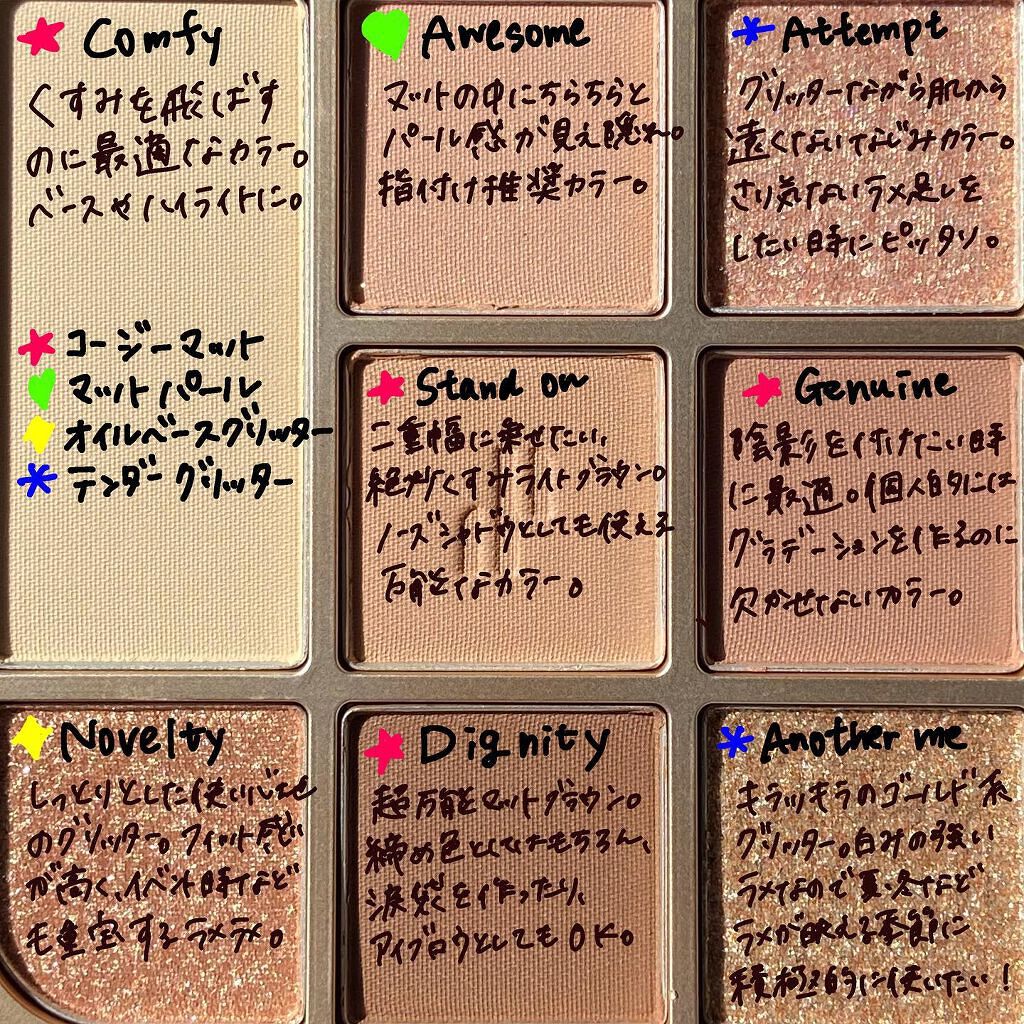 Comfy
くすみを飛ばす
のに最適なカラー。
ベースやハイライトに。
コージーマット
マットパール
オイルベースグリッター
テンダーグリッター
Awesome
マットの中にちらちらと
パール感が見え隠れ。
指付け推奨カラー。
Attempt
グリッターながら肌から
遠くないなじみカラー。
さり気ないラメ足しを
したい時にピッタリ。
Stand on
二重幅に乗せたい、
絶妙くすみライトブラウン。
ノーズシャドウとしても使える
万能なカラー。
Genuine
陰影を付けたい時
に最適。個人的には
グラデーションを作るのに
欠かせないカラー。
Novelty
しっとりとした使い心地
のグリッター。フィット感
が高く、イベント時など
も重宝するラメラメ。
Dignity
超万能マットブラウン。
締め色としてはもちろん、
涙袋を作ったり、
アイブロウとしてもOK。
Another me
キラッキラのゴールド系
グリッター。白みの強い
ラメなので夏・冬など
ラメが映える季節に
積極的に使いたい!